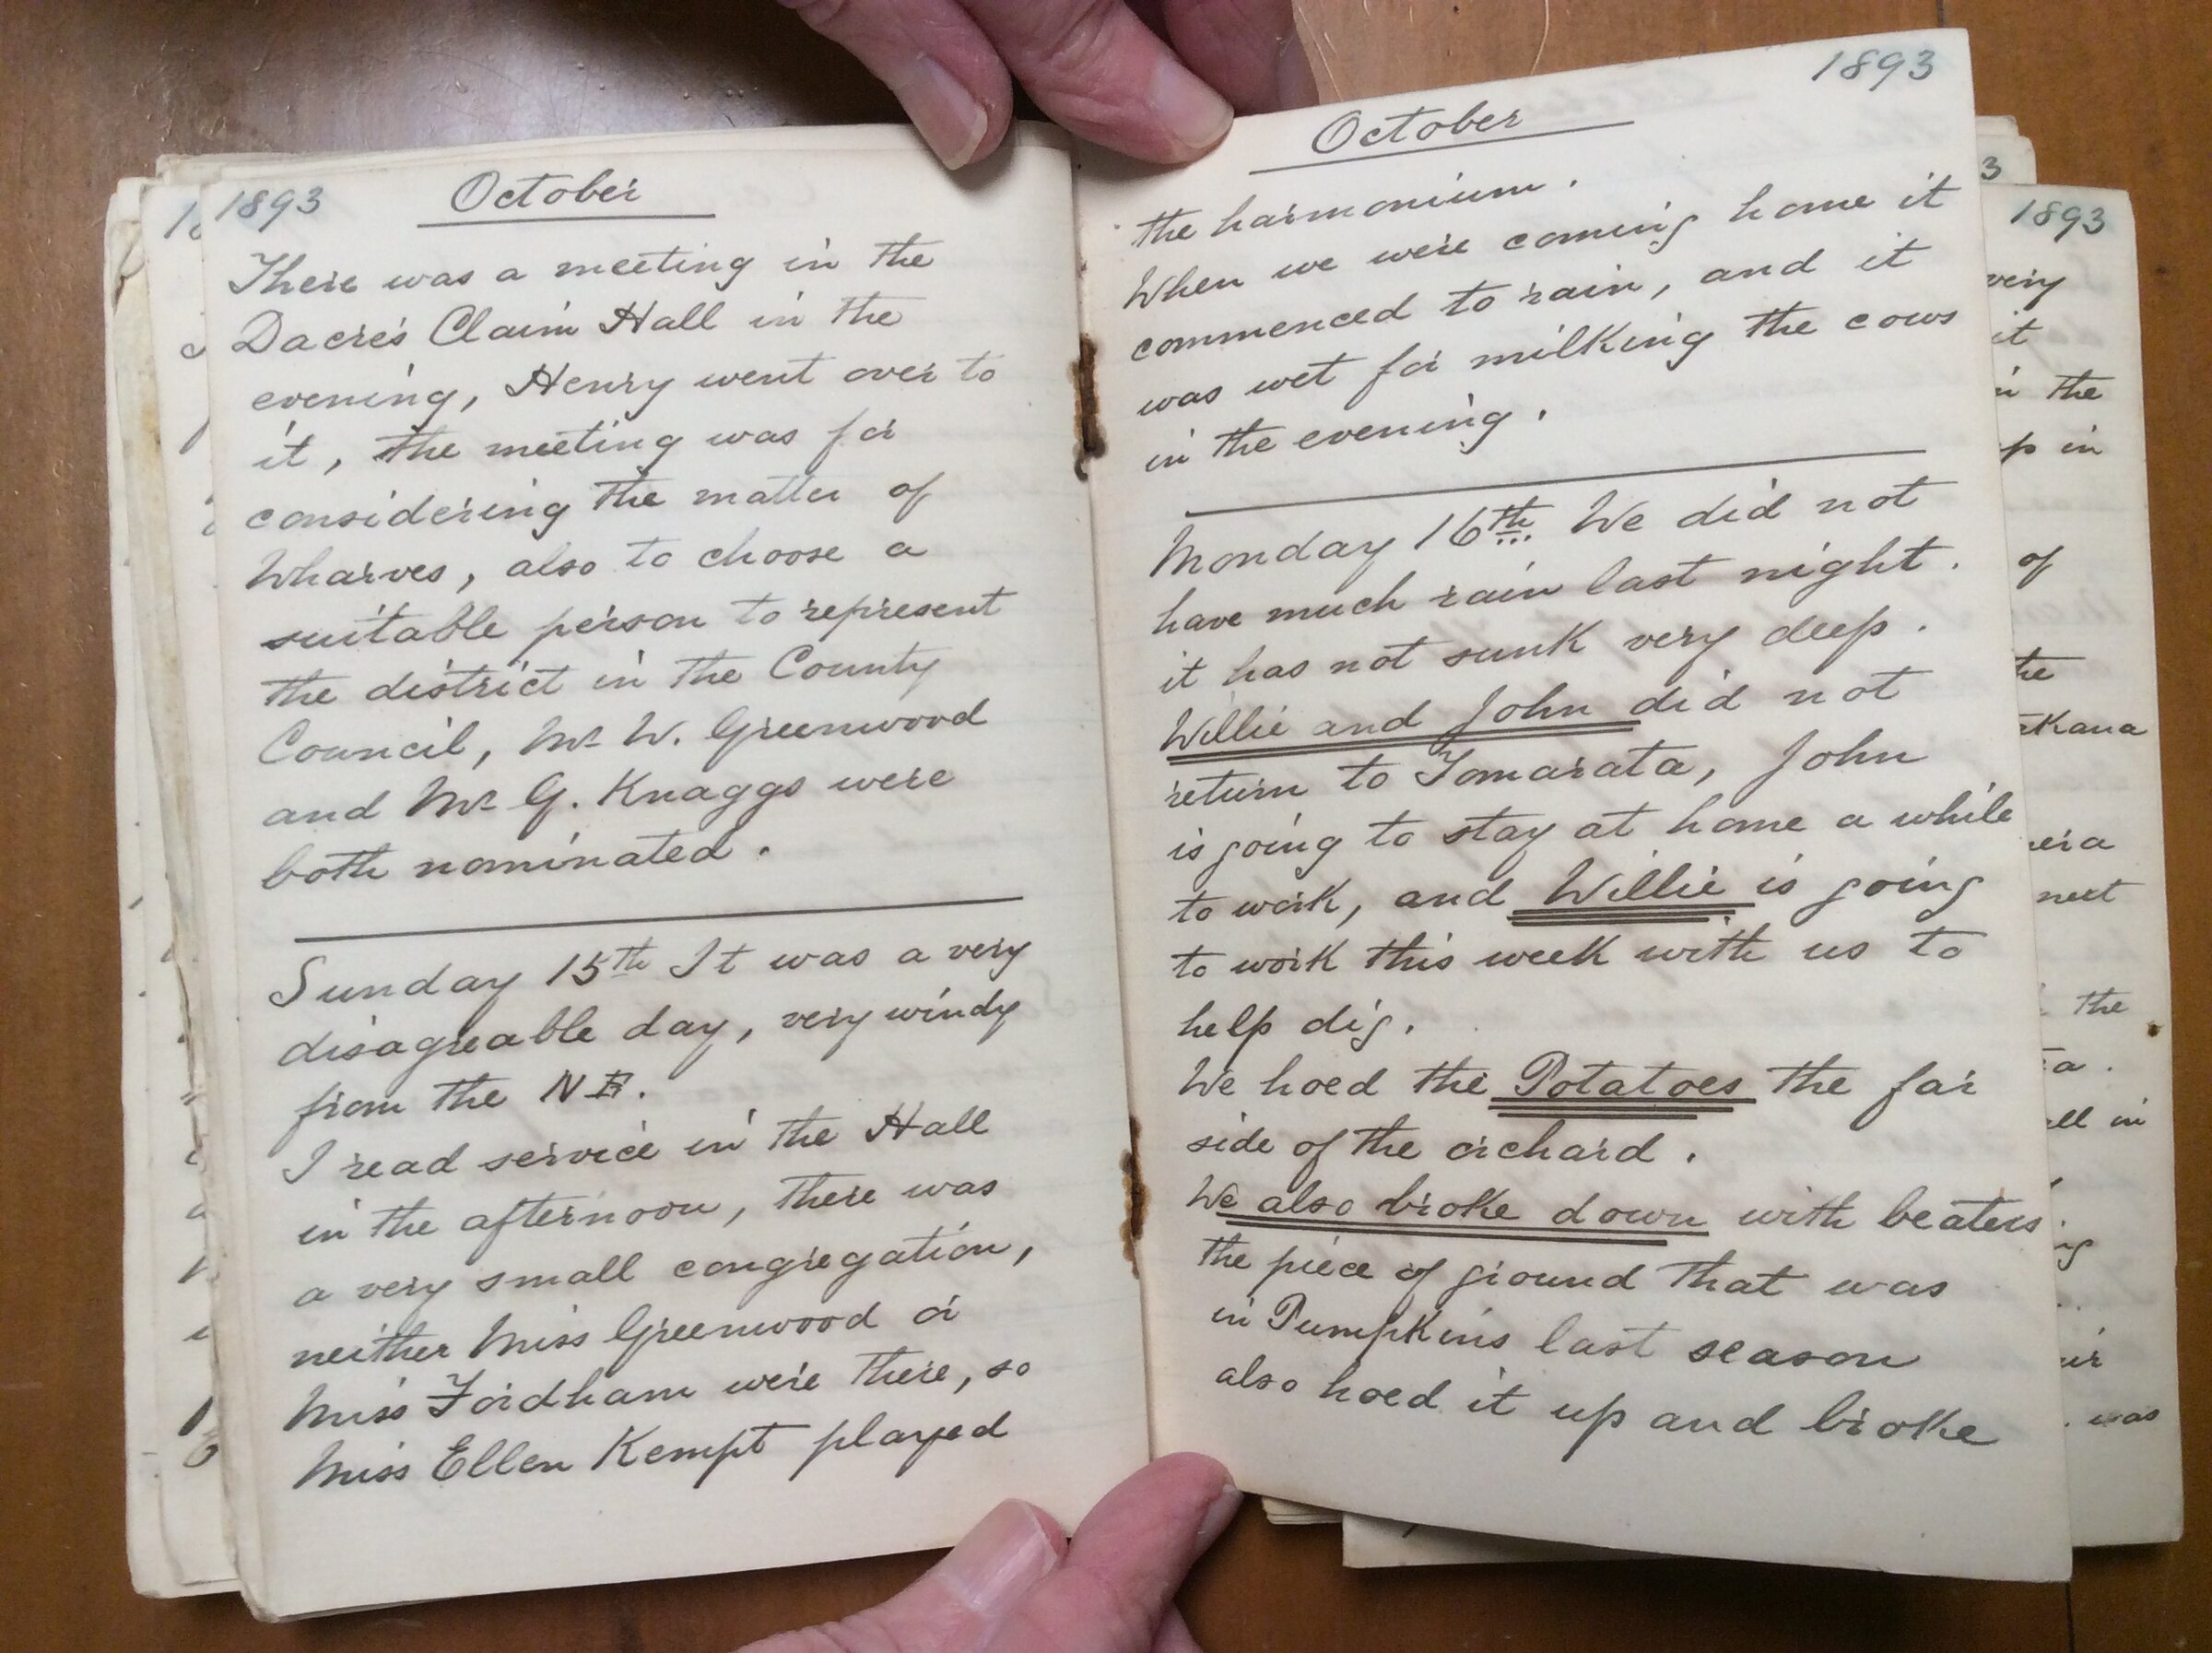 1893 October
There was a meeting in the
Dacre's Claim Hall in the
evening, Henry went over to
it, the meeting was for
considering the matter of
Wharves, also to choose a
suitable person to represent
the district in the County
Council, Mr W. Greenwood
and Mr G. Knaggs were
both nominated.
Sunday 15th It was a very
disagreable day, very windy
from the N E.
I read service in the Hall
in the afternoon, there was
a very small congregation,
neither Miss Greenwood or
Miss Fordham were there, so
Miss Ellen Kempt played
1893
October
the harmonium.
When we were coming home it
commenced to rain, and it
was wet for milking the cows
in the evening.
Monday 16th We did not
have much rain last night.
it has not sunk very deep.
Willie and John did not
return to Tomarata, John
is going to stay at home a while
to work, and Willie is going
to work this week with us to
help dig.
We hoed the Potatoes the far
side of the orchard.
We also broke down with beaters
the piece of ground that was
in Pumpkins last season
also hoed it up and broke
3
1893
very
it
in the
p in
of
the
kana
era
next
the
a.
ll in
was